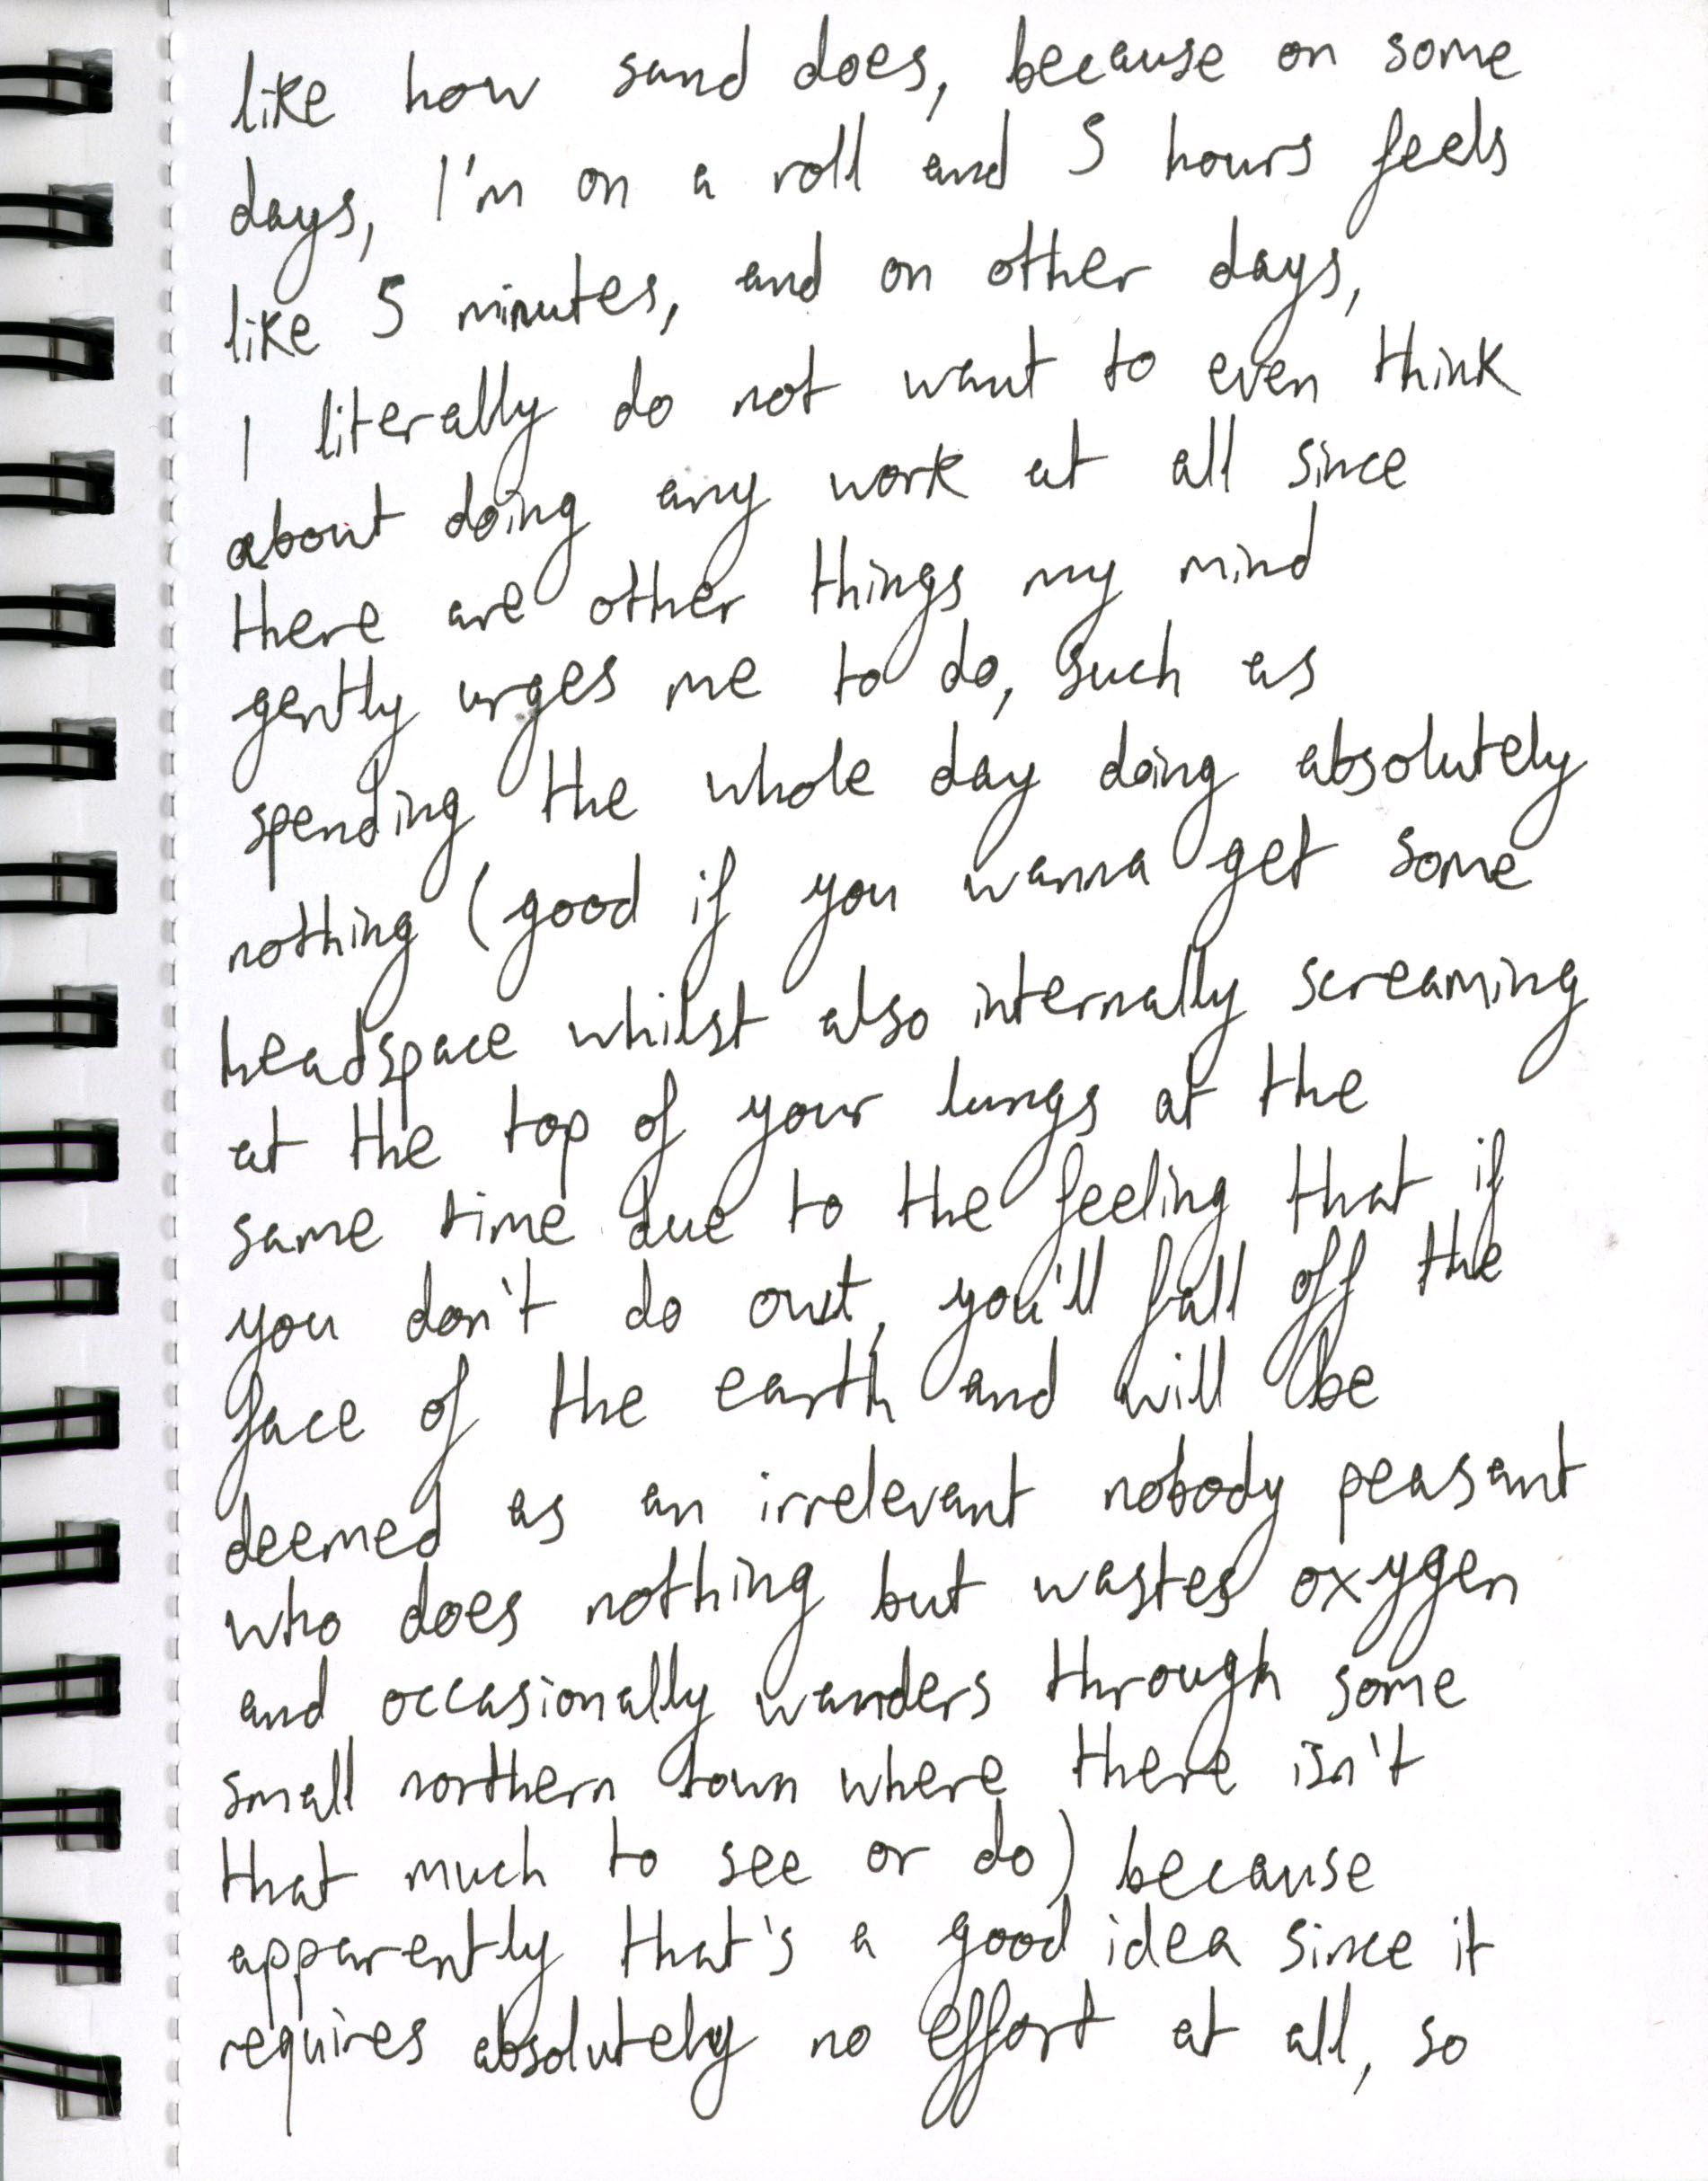 like how sand does, because on some
days, I'm on a roll and 5 hours feels
like 5 minutes, and on other days,
I literally do not want to even think
about doing any work at all since
there are other things my mind
gently urges me to do, such as
spending the whole day doing absolutely
nothing (good if you wanna get some
headspace whilst also internally screaming
at the top of your lungs at the
same time due to the feeling that if
you don't do owt, you'll fall off the
face of the earth and will be
deemed as an irrelevant nobody peasant
who does nothing but wastes oxygen
and occasionally wanders through some
small northern town where there isn't
that much to see or do) because
apparently that's a good idea since it
requires absolutely no effort at all, so